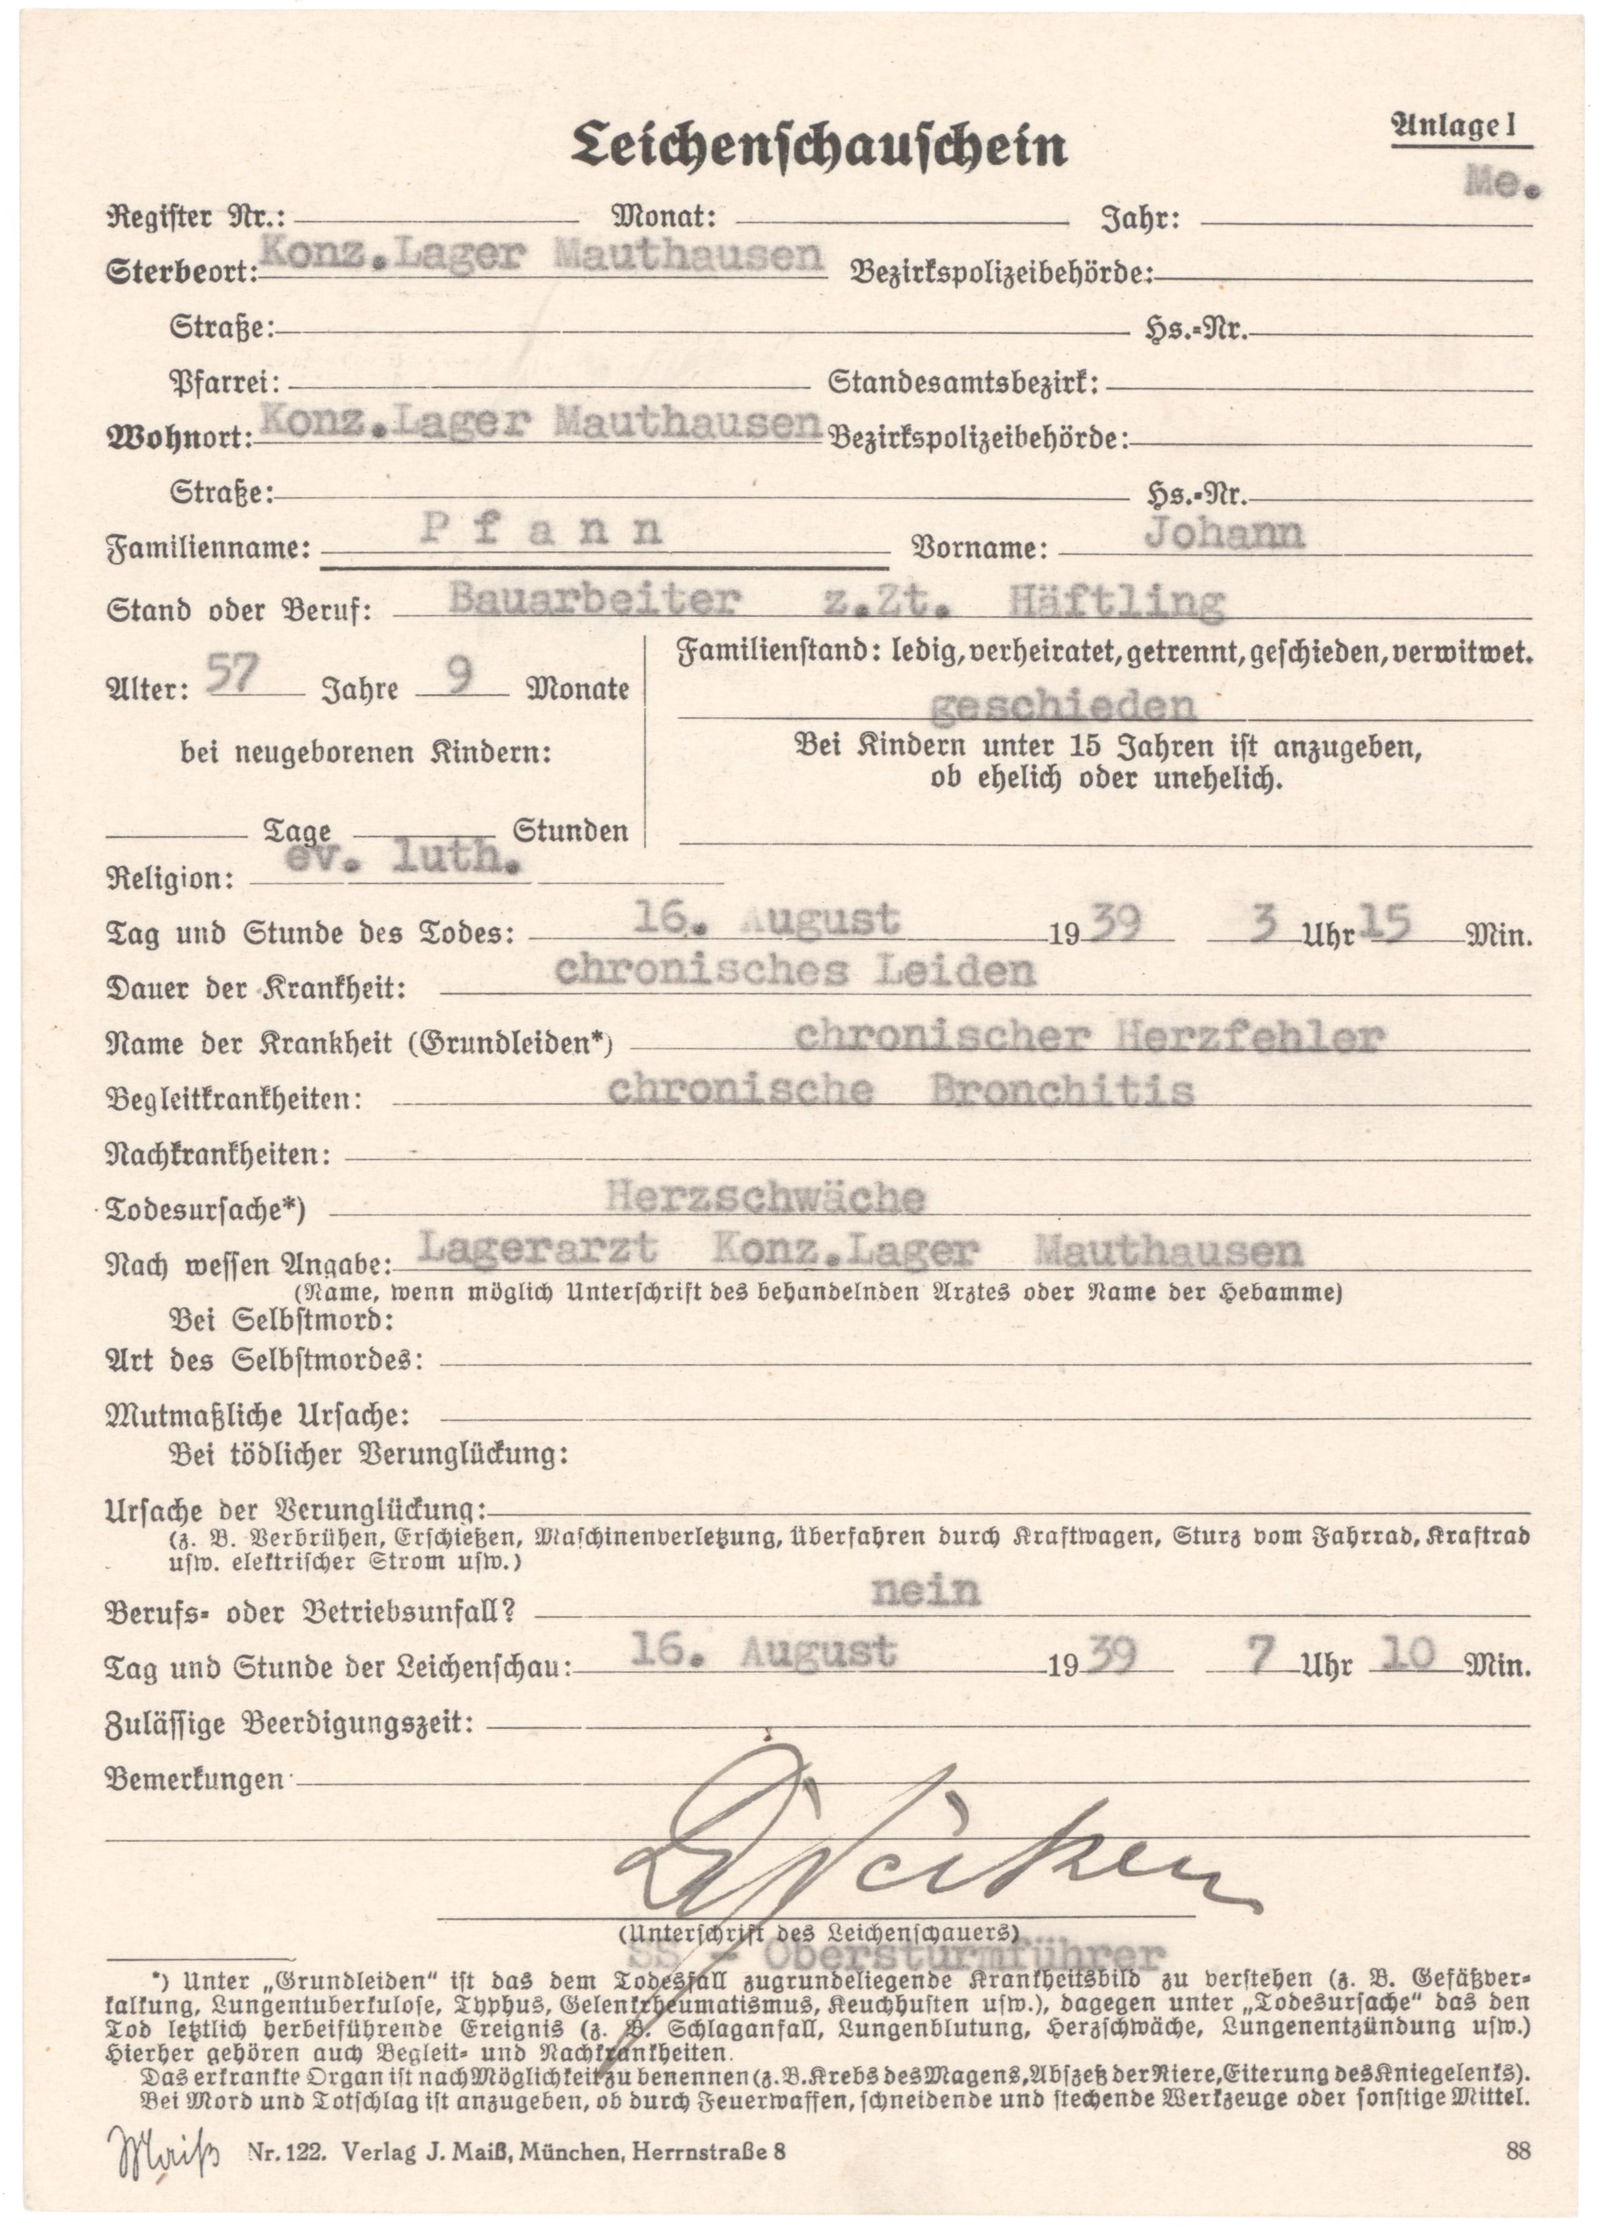 Anlage I
Leichenschauschein
Me.
Register Nr.: Monat: Jahr:
Sterbeort: Konz.Lager Mauthausen Bezirkspolizeibehörde:
Straße: Hs.-Nr.
Pfarrei: Standesamtsbezirk:
Wohnort: Konz.Lager Mauthausen Bezirkspolizeibehörde:
Straße: Hs.-Nr.
Familienname: Pfann Vorname: Johann
Stand oder Beruf: Bauarbeiter z.Zt. Häftling
Alter: 57 Jahre 9 Monate
Familienstand: ledig, verheiratet, getrennt, geschieden, verwitwet.
geschieden
bei neugeborenen Kindern:
Bei Kindern unter 15 Jahren ist anzugeben,
ob ehelich oder unehelich.
Tage Stunden
Religion: ev. luth.
Tag und Stunde des Todes: 16. August 1939 3 Uhr 15 Min.
Dauer der Krankheit: chronisches Leiden
Name der Krankheit (Grundleiden*) chronischer Herzfehler
Begleitkrankheiten: chronische Bronchitis
Nachkrankheiten:
Todesursache*) Herzschwäche
Nach wessen Angabe: Lagerarzt Konz.Lager Mauthausen
(Name, wenn möglich Unterschrift des behandelnden Arztes oder Name der Hebamme)
Bei Selbstmord:
Art des Selbstmordes:
Mutmaßliche Ursache:
Bei tödlicher Verunglückung:
Ursache der Verunglückung:
(z. B. Verbrühen, Erschießen, Maschinenverletzung, Überfahren durch Kraftwagen, Sturz vom Fahrrad, Kraftrad
usw. elektrischer Strom usw.)
Berufs- oder Betriebsunfall? nein
Tag und Stunde der Leichenschau: 16. August 1939 7 Uhr 10 Min.
Zulässige Beerdigungszeit:
Bemerkungen
(Unterschrift des Leichenschauers)
SS - Obersturmführer
*) Unter „Grundleiden“ ist das dem Todesfall zugrundeliegende Krankheitsbild zu verstehen (z. B. Gefäßver-
kalkung, Lungentuberkulose, Typhus, Gelenkrheumatismus, Keuchhusten usw.), dagegen unter „Todesursache“ das den
Tod letztlich herbeiführende Ereignis (z. B. Schlaganfall, Lungenblutung, Herzschwäche, Lungenentzündung usw.)
Hierher gehören auch Begleit- und Nachkrankheiten.
Das erkrankte Organ ist nach Möglichkeit zu benennen (z. B. Krebs des Magens, Abszeß der Niere, Eiterung des Kniegelenks).
Bei Mord und Totschlag ist anzugeben, ob durch Feuerwaffen, schneidende und stechende Werkzeuge oder sonstige Mittel.
Maiß Nr. 122. Verlag J. Maiß, München, Herrnstraße 8 88